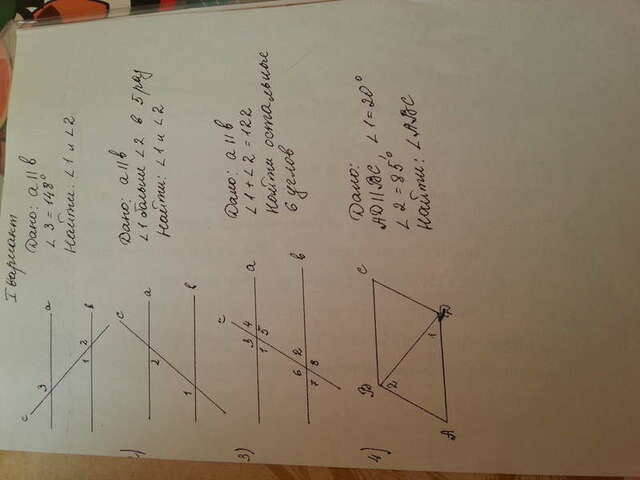 I вариант
Дано: a || b
∠3 = 148°
Найти: ∠1 и ∠2
c
a
b
3
1 2
2)
Дано: a || b
∠1 больше ∠2 в 5 раз
Найти: ∠1 и ∠2
c
a
b
2
1
3)
Дано: a || b
∠1 + ∠2 = 122
Найти остальные
6 углов
c
a
b
3 4
1 5
6 2
7 8
4)
Дано:
AD || BC ∠1 = 20°
∠2 = 85°
Найти: ∠ABC
B
C
A
D
2
1